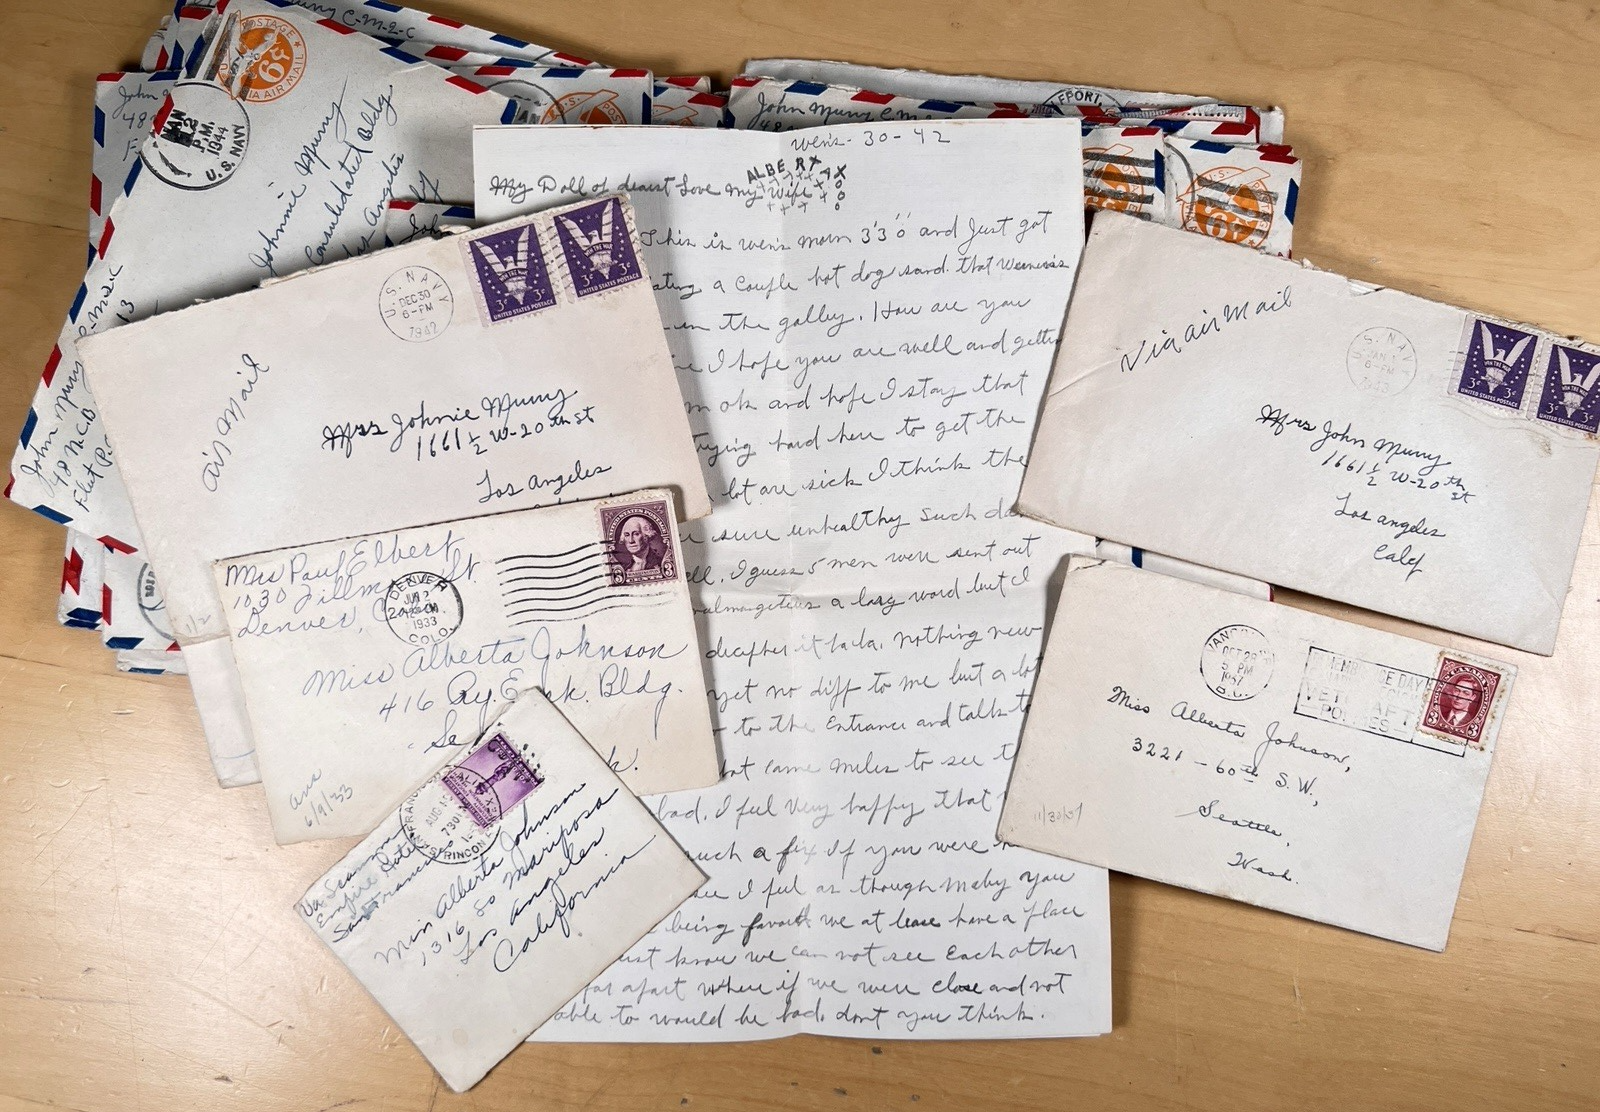 C-M-2-C
POSTAGE
6¢
VIA AIR MAIL
JAN
2
P.M.
1944
U.S. NAVY
Johnnie Murry
Consolidated Bldg
Los Angeles
John Murry
48 N.C.B
Flet P.O.
13
John Murry C.M.
U.S. POSTAGE
6¢
wens- 30-42
ALBERTA
My Doll of dearest Love My Wife
X X X X X
This is wens morn 3'30" and Just got
a couple hot dog sand. that
in the galley. How are you
I hope you are well and
ok and hope I stay that
hard here to get the
lot are sick I think the
sure unhealthy such
I guess 5 men were sent out
a long word but I
decipher it ha ha. nothing new
yet no diff to me but a lot
to the Entrance and talk to
came miles to see
bad. I feel very happy that
such a fix if you were
I feel as though maby you
being we at lease have a place
know we can not see Each other
far apart where if we were close and not
able to would be bad. dont you think.
air Mail
U.S. NAVY
DEC 30
6-PM
1942
WIN THE WAR
3¢ 3¢
UNITED STATES POSTAGE
WIN THE WAR
3¢ 3¢
UNITED STATES POSTAGE
Mrs Johnie Murry
1661 1/2 W-20th St
Los Angeles
Via air Mail
U.S. NAVY
JAN 1
6-PM
WIN THE WAR
3¢ 3¢
UNITED STATES POSTAGE
WIN THE WAR
3¢ 3¢
UNITED STATES POSTAGE
Mrs John Murry
1661 1/2 W-20th St
Los Angeles
Calif
Mrs Paul Elbert
1030 Fillmore St.
Denver, Colo.
DENVER
JUN 2
1933
COLO.
UNITED STATES POSTAGE
3 CENTS 3
Miss Alberta Johnson
416 Ry. Exch. Bldg.
Se
ans
6/9/33
Via Seaman
Empire Hotel
San Francisco
SAN FRANCISCO
AUG 10
730
RINCON
Miss Alberta Johnson
1316 So Mariposa
Los Angeles
California
OCT 29
5 PM
1937
B.C.
REMEMBRANCE DAY
VETCRAFT
POPPIES
POSTES CANADA POSTAGE
3 3
Miss Alberta Johnson,
3221 - 60th S.W.,
Seattle,
Wash.
11/30/37